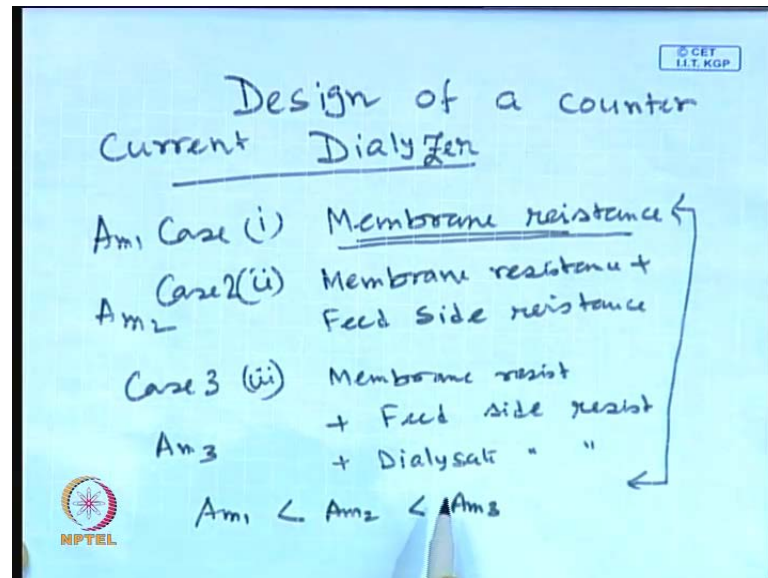 © CET
I.I.T. KGP
Design of a counter
Current Dialyzer
Am1 Case (i) Membrane reistance
Case2(ii) Membrane resistance +
Am2 Feed Side reistance
Case 3 (iii) Membrane resist
+ Feed side resist
Am3 + Dialysate " "
Am1 < Am2 < Am3
NPTEL